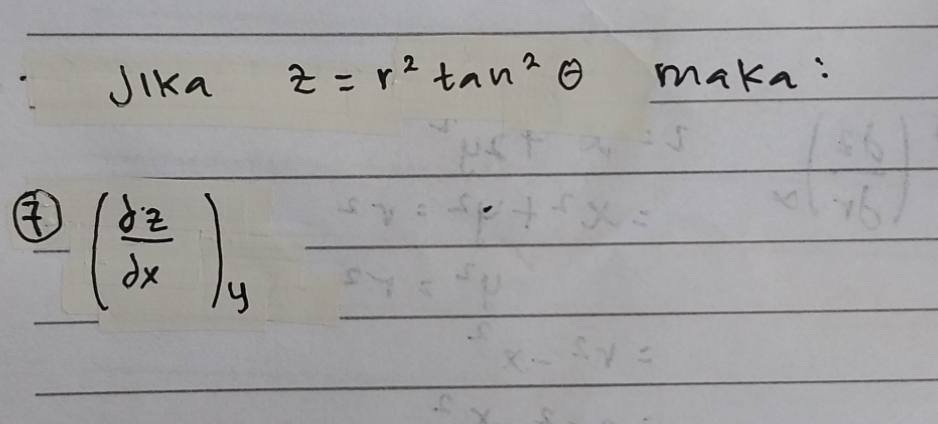 Jika z = r² tan² θ maka:
⑦ (∂z/∂x)y